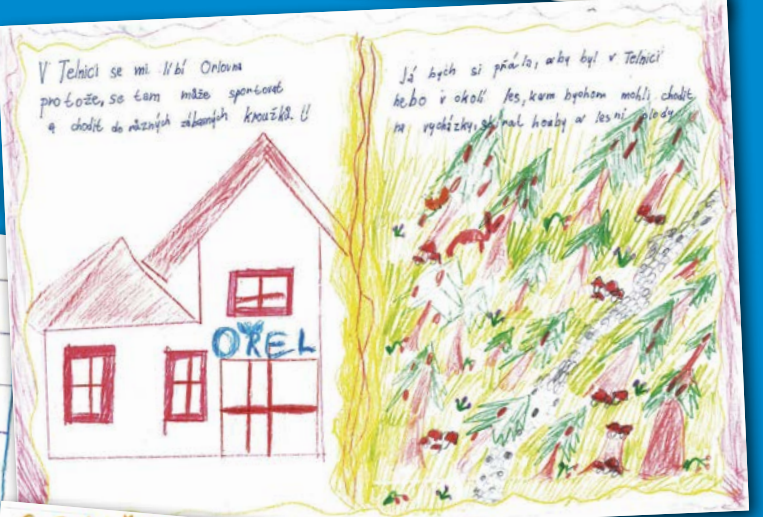 V Telnici se mi líbí Orlovna
protože, se tam může sportovat
a chodit do různých zábavných kroužků. U
OREL
Já bych si přála, aby byl v Telnici
nebo v okolí les, kam bychom mohli chodit
na vycházky, sbírat houby a lesní plody